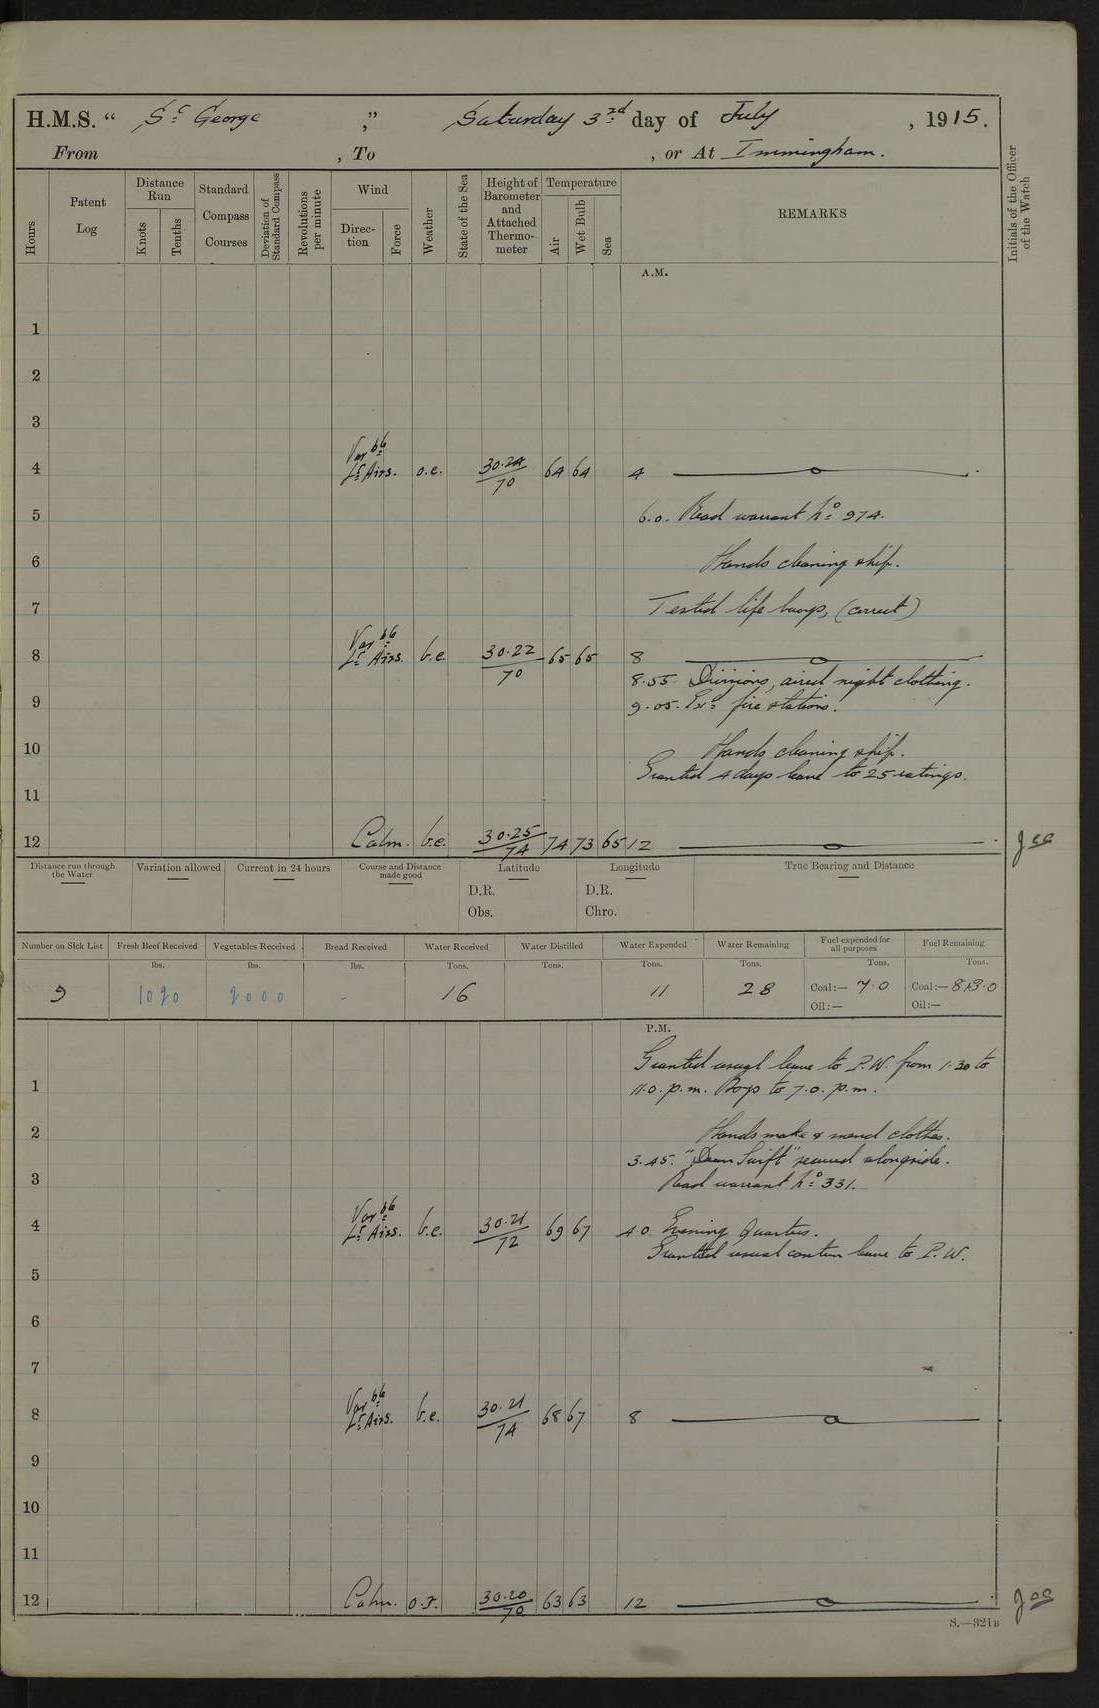 H.M.S. “ St George ,” Saturday 3rd day of July , 1915.
From , To , or At Immingham.
Hours
Patent Log
Distance Run
Knots
Tenths
Standard Compass Courses
Deviation of Standard Compass
Revolutions per minute
Wind
Direction
Force
Weather
State of the Sea
Height of Barometer and Attached Thermometer
Temperature
Air
Wet Bulb
Sea
REMARKS
Initials of the Officer of the Watch
A.M.
1
2
3
Var ble
4 Lt Airs. o.c. 30.24/70 64 64 4
5 6.0. Read warrant No 974.
6 Hands cleaning ship.
7 Tested life buoys, (correct)
Var ble
8 Lt Airs. b.c. 30.22/70 65 65 8
8.55 Divisions, aired night clothing.
9 9.05. Exd fire stations.
10 Hands cleaning ship.
Granted 4 days leave to 25 ratings.
11
12 Calm. b.c. 30.25/74 74 73 65 12
Distance run through the Water
Variation allowed
Current in 24 hours
Course and Distance made good
Latitude
D.R.
Obs.
Longitude
D.R.
Chro.
True Bearing and Distance
Number on Sick List Fresh Beef Received Vegetables Received Bread Received Water Received Water Distilled Water Expended Water Remaining Fuel expended for all purposes Fuel Remaining
lbs. lbs. lbs. Tons. Tons. Tons. Tons. Tons. Tons.
9 1020 2000 - 16 11 28 Coal:— 7.0 Coal:— 813.0
Oil:— Oil:—
P.M.
Granted usual leave to P.W. from 1.30 to
1 11.0. p.m. Boys to 7.0. p.m.
2 Hands make & mend clothes.
3.45. "Dean Swift" secured alongside.
3 Read warrant No 331.
Var ble
4 Lt Airs. b.c. 30.21/72 69 67 4 0 Evening Quarters.
Granted usual leave to P.W.
5
6
7
Var ble
8 Lt Airs. b.c. 30.21/74 68 67 8
9
10
11
12 Calm. o.r. 30.20/70 63 63 12
S.—321B